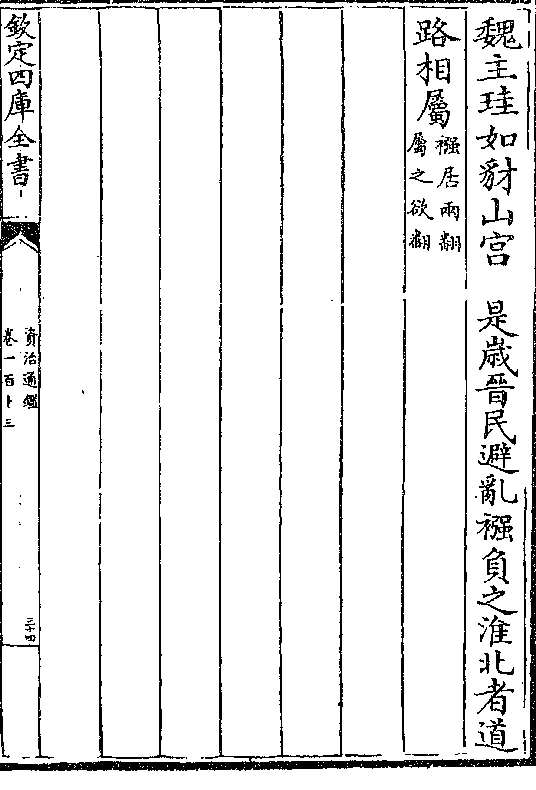 魏主珪如豺山宫　是歳晉民避亂襁負之淮北者道
路相屬襁居兩翻
屬之欲翻
欽定四庫全書
資治通鑑
卷一百十三
三十四